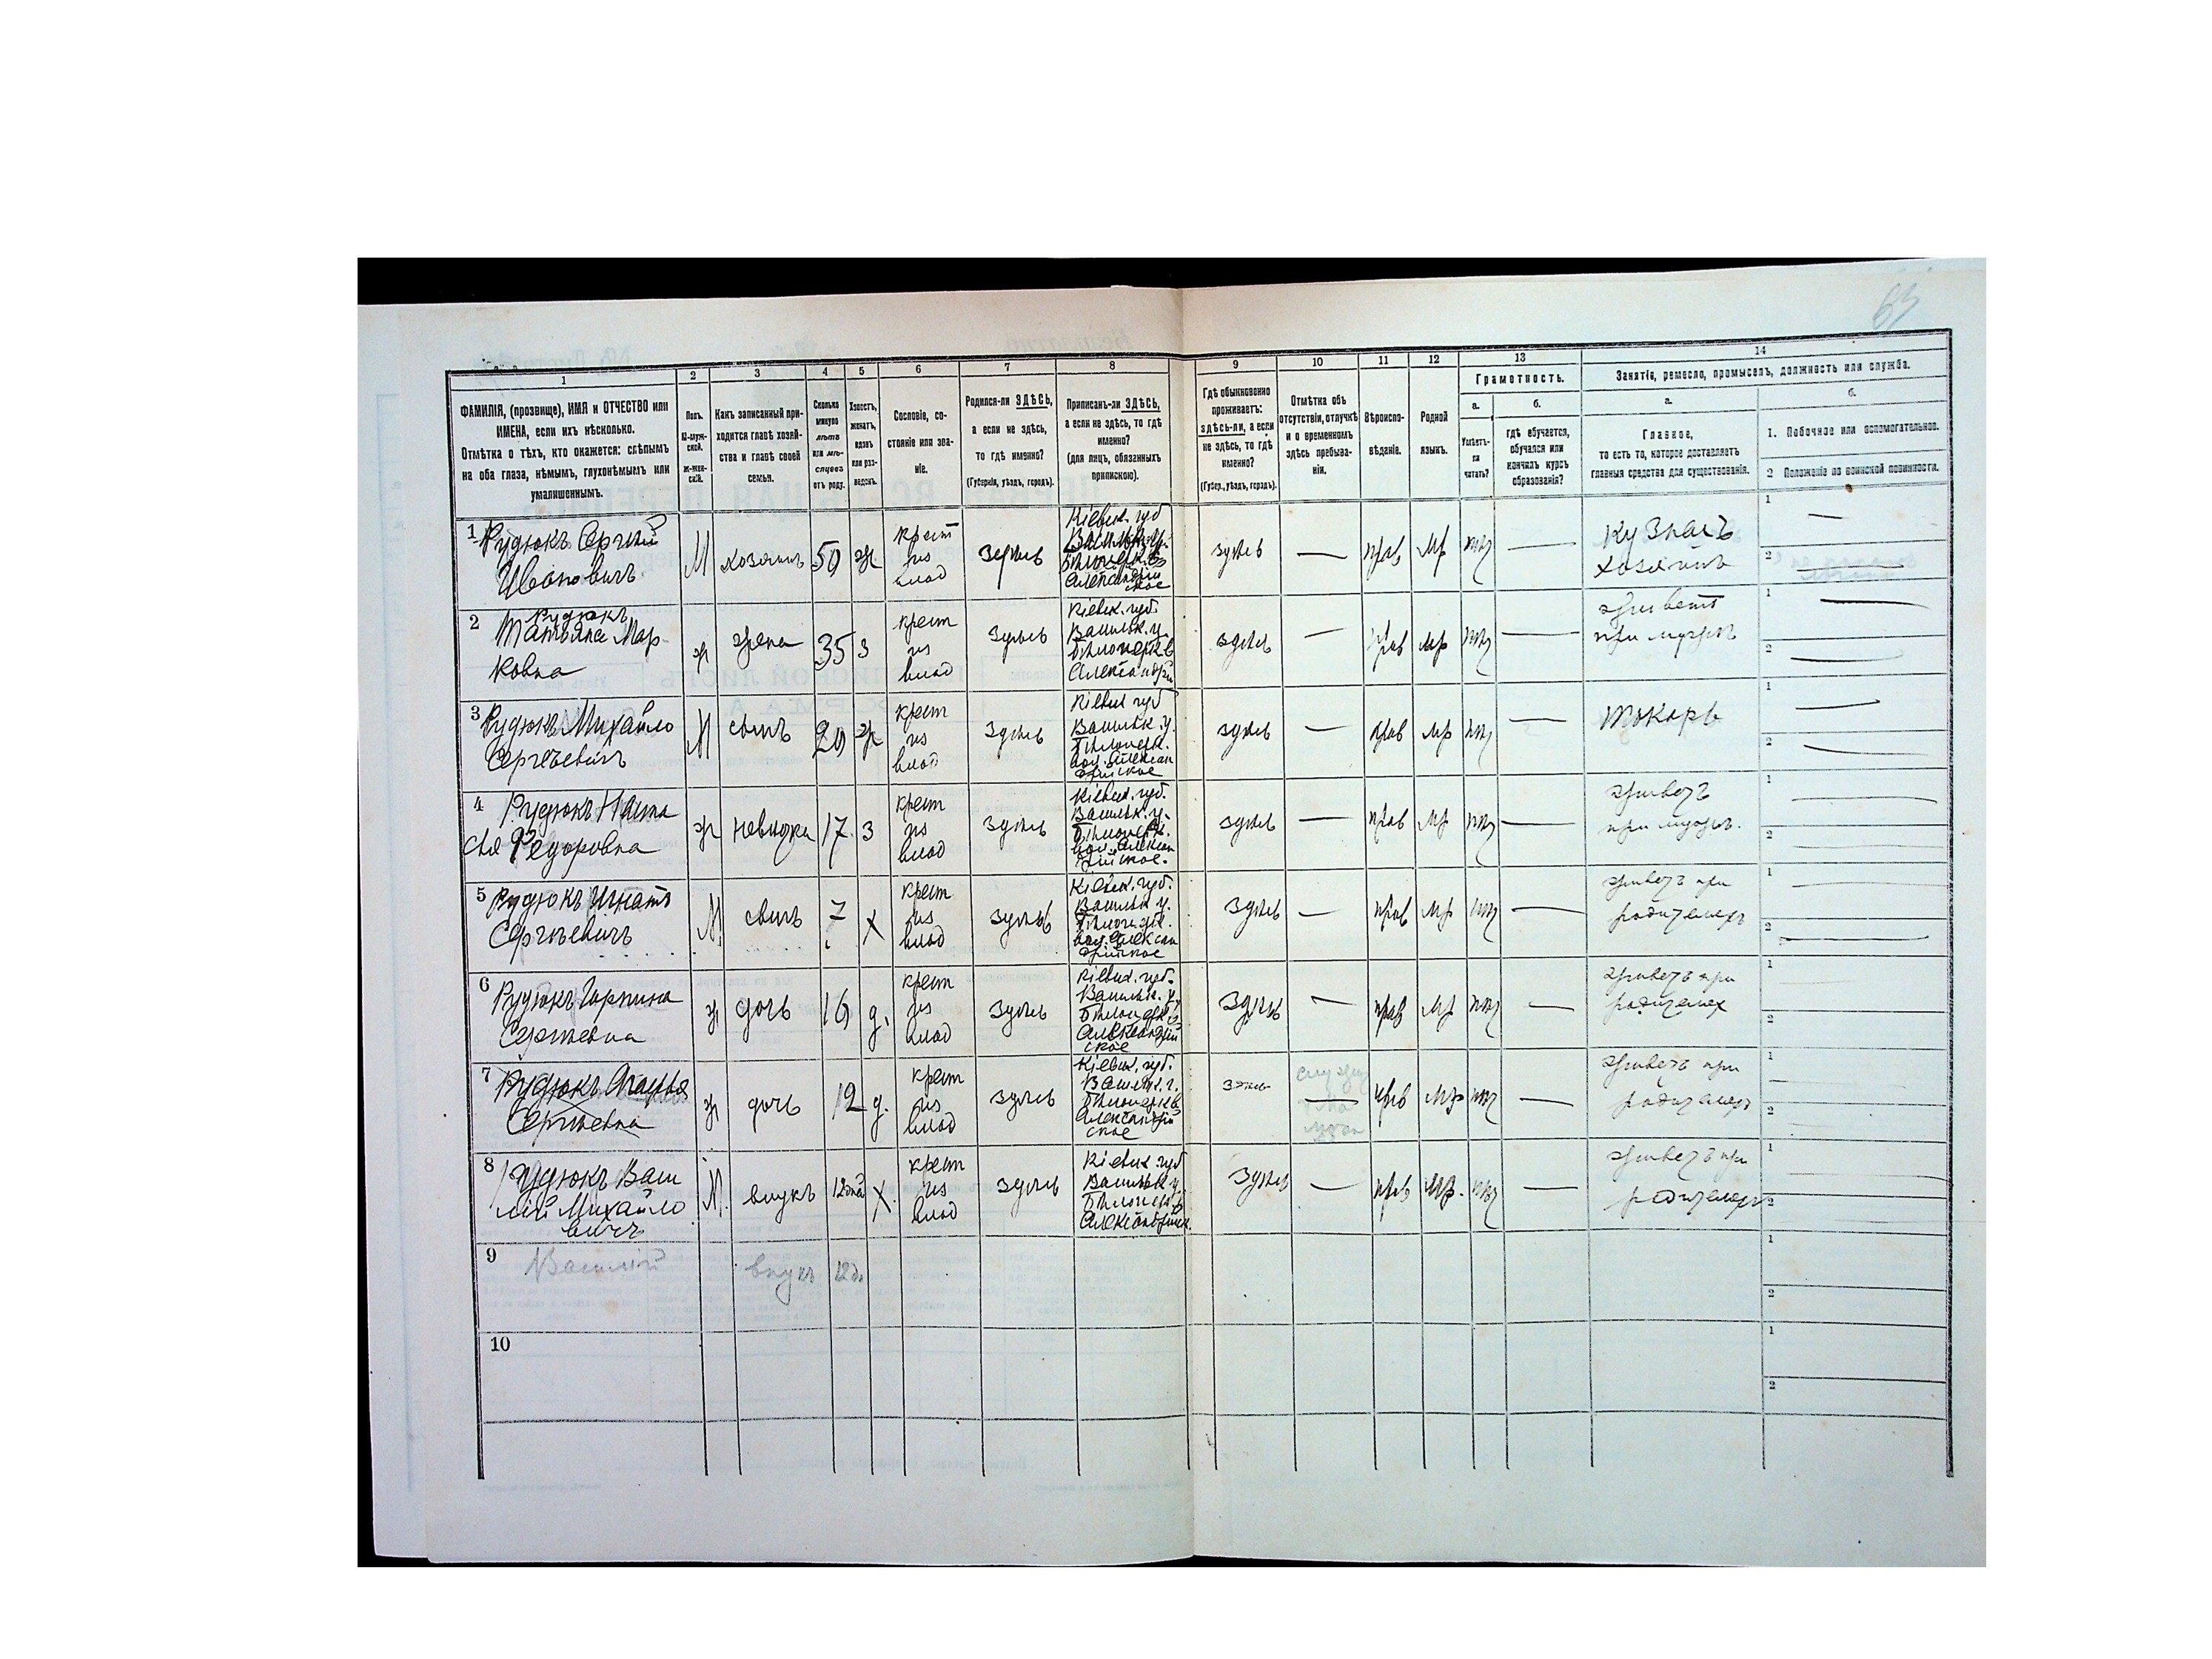 63
1
2
3
4
5
6
7
8
9
10
11
12
13
14
ФАМИЛІЯ, (прозвище), ИМЯ и ОТЧЕСТВО или
ИМЕНА, если ихъ нѣсколько.
Отмѣтка о тѣхъ, кто окажется: слѣпымъ
на оба глаза, нѣмымъ, глухонѣмымъ или
умалишеннымъ.
Полъ.
М-муж-
ской.
Ж-жен-
скій.
Какъ записанный при-
ходится главѣ хозяй-
ства и главѣ своей
семьи.
Сколько
минуло
лѣтъ
или мѣ-
сяцевъ
отъ роду.
Холостъ,
женатъ,
вдовъ
или раз-
веденъ.
Сословіе, со-
стояніе или зва-
ніе.
Родился-ли ЗДѢСЬ,
а если не здѣсь,
то гдѣ именно?
(Губернія, уѣздъ, городъ).
Приписанъ-ли ЗДѢСЬ,
а если не здѣсь, то гдѣ
именно?
(для лицъ, обязанныхъ
припискою).
Гдѣ обыкновенно
проживаетъ:
здѣсь-ли, а если
не здѣсь, то гдѣ
именно?
(Губер., уѣздъ, городъ).
Отмѣтка объ
отсутствіи, отлучкѣ
и о временномъ
здѣсь пребыва-
ніи.
Вѣроиспо-
вѣданіе.
Родной
языкъ.
Грамотность.
а.
Умѣетъ-
ли
читать?
б.
гдѣ обучается,
обучался или
кончилъ курсъ
образованія?
Занятіе, ремесло, промыселъ, должность или служба.
а.
Главное,
то есть то, которое доставляетъ
главныя средства для существованія.
б.
1. Побочное или вспомогательное.
2 Положеніе по воинской повинности.
1 Рудюкъ Сергій
Ивановичъ
М хозяинъ 50 ж
крест
из
влад
здѣсь
Кіевск. губ
Васильк. у.
Бѣлоцерк. в
Александрій
ское
здѣсь — прав мр нѣт —
кузнецъ
хозяинъ
1 —
2 —
2 Рудюкъ
Татьяна Мар
ковна
ж жена 35 з
крест
из
влад
здѣсь
Кіевск. губ.
Васильк. у.
Бѣлоцерк в
Александрій
здѣсь — прав мр нѣт —
живетъ
при мужѣ
1 —
2 —
3 Рудюкъ Михайло
Сергѣевичъ
М сынъ 20 ж
крест
из
влад
здѣсь
Кіевск губ
Васильк. у.
Бѣлоцерк.
вол. Алексан
дрійское
здѣсь — прав мр нѣт —
токарь
1 —
2 —
4 Рудюкъ Наста
сья Федоровна
ж невѣстка 17 з
крест
из
влад
здѣсь
Кіевск. губ.
Васильк. у.
Бѣлоцерк.
вол. Алексан
дрійское.
здѣсь — прав мр нѣт —
живетъ
при мужѣ.
1 —
2 —
5 Рудюкъ Игнатъ
Сергѣевичъ
М. сынъ 7 х
крест
из
влад
здѣсь
Кіевск. губ.
Васильк у.
Бѣлоцерк.
вол. Алексан
дрійское
здѣсь — прав мр нѣт —
живетъ при
родителяхъ
1
2 —
6 Рудюкъ Гарпина
Сергѣевна
ж дочь 16 д.
крест
из
влад
здѣсь
Кіевск. губ.
Васильк. у.
Бѣлоцерк в
Александрій
ское
здѣсь — прав мр нѣт —
живетъ при
родителях
1
2
7 Рудюкъ
Сергѣевна
ж дочь 12 д.
крест
из
влад
здѣсь
Кіевск. губ.
Васильк. у.
Бѣлоцерк в
Александрій
ское
здѣсь — прав мр нѣт —
живетъ при
родителяхъ
1
2
8 Рудюкъ Васи
лій Михайло
вичъ
М. внукъ 12 дней х.
крест
из
влад
здѣсь
Кіевск губ
Васильк у.
Бѣлоцерк в
Александрийск.
здѣсь — прав мр. нѣт —
живетъ при
родителяхъ
1
2
9 Василій внукъ 12 д.
1
2
10
1
2